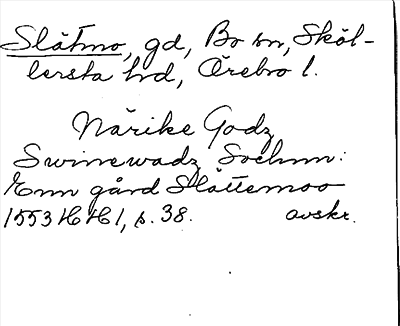 Slåtmo, gd, Bo sn, Sköl-
lersta hd, Örebro l.
Närike Godz
Swinewadz Sochnn:
Enn gård Slåttemoo
1553 HH 1, s. 38. avskr.